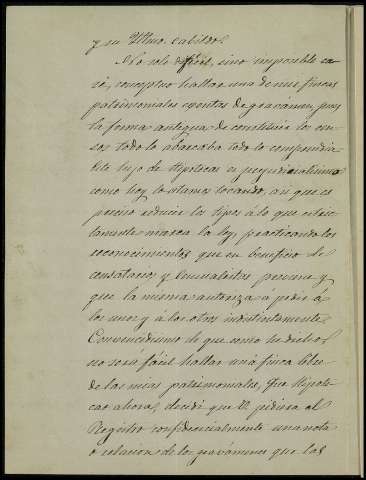 y su Ylltmo. Cabildo.
No solo dificil, sino imposible ca-
si, conceptuo hallar una de mis fincas
patrimoniales exentas de gravamen, pues
la forma antigua de constituir los cen-
sos todo lo abarcaba todo lo comprendia.
Este lujo de Hipotecas es perjudicialisimo
como hoy lo estamos tocando, asi que es
preciso reducir los tipos á lo que estric-
tamente marca la ley, practicando los
reconocimientos que en beneficio de
censatarios y Censualistas previene y
que la misma autoriza á pedir á
los unos y á los otros indistintamente.
Convencidisimo de que como he dicho
no será fácil hallar una finca libre
de las mias patrimoniales, que Hipote-
car ahora, decidí que V. pidiera al
Registro confidencialmente una nota
ó relacion de los gravámenes que las